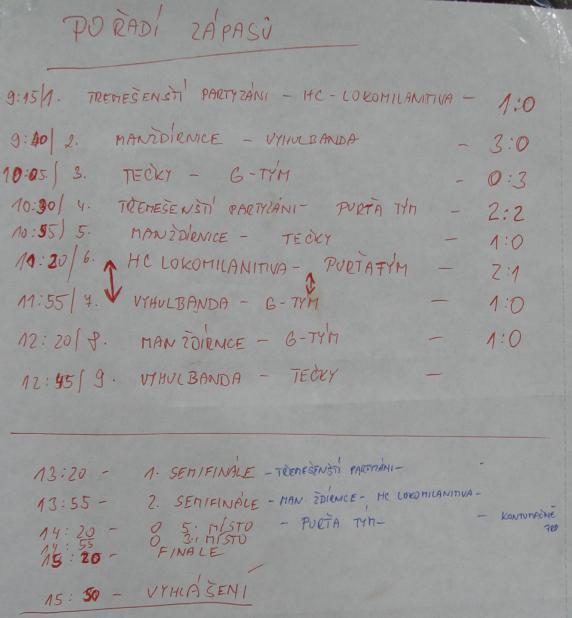 POŘADÍ ZÁPASŮ
9:15/1. TŘEMEŠENŠTÍ PARTYZÁNI - HC-LOKOMILANITIVA - 1:0
9:40/2. MANŽDÍRNICE - VYHULBANDA - 3:0
10:05/3. TEČKY - G-TÝM - 0:3
10:30/4. TŘEMEŠENŠTÍ PARTYZÁNI - PURŤA TÝM - 2:2
10:55/5. MANŽDÍRNICE - TEČKY - 1:0
11:20/6. HC LOKOMILANITIVA - PURŤA TÝM - 2:1
11:55/7. VYHULBANDA - G-TÝM - 1:0
12:20/8. MANŽDÍRNICE - G-TÝM - 1:0
12:45/9. VYHULBANDA - TEČKY -
13:20 - 1. SEMIFINÁLE - TŘEMEŠENŠTÍ PARTYZÁNI -
13:55 - 2. SEMIFINÁLE - MANŽDÍRNICE - HC LOKOMILANITIVA -
14:20 - O 5. MÍSTO - PURŤA TÝM - - KONTUMAČNĚ
14:55 O 3. MÍSTO
15:20 - FINÁLE
15:50 - VYHLÁŠENÍ